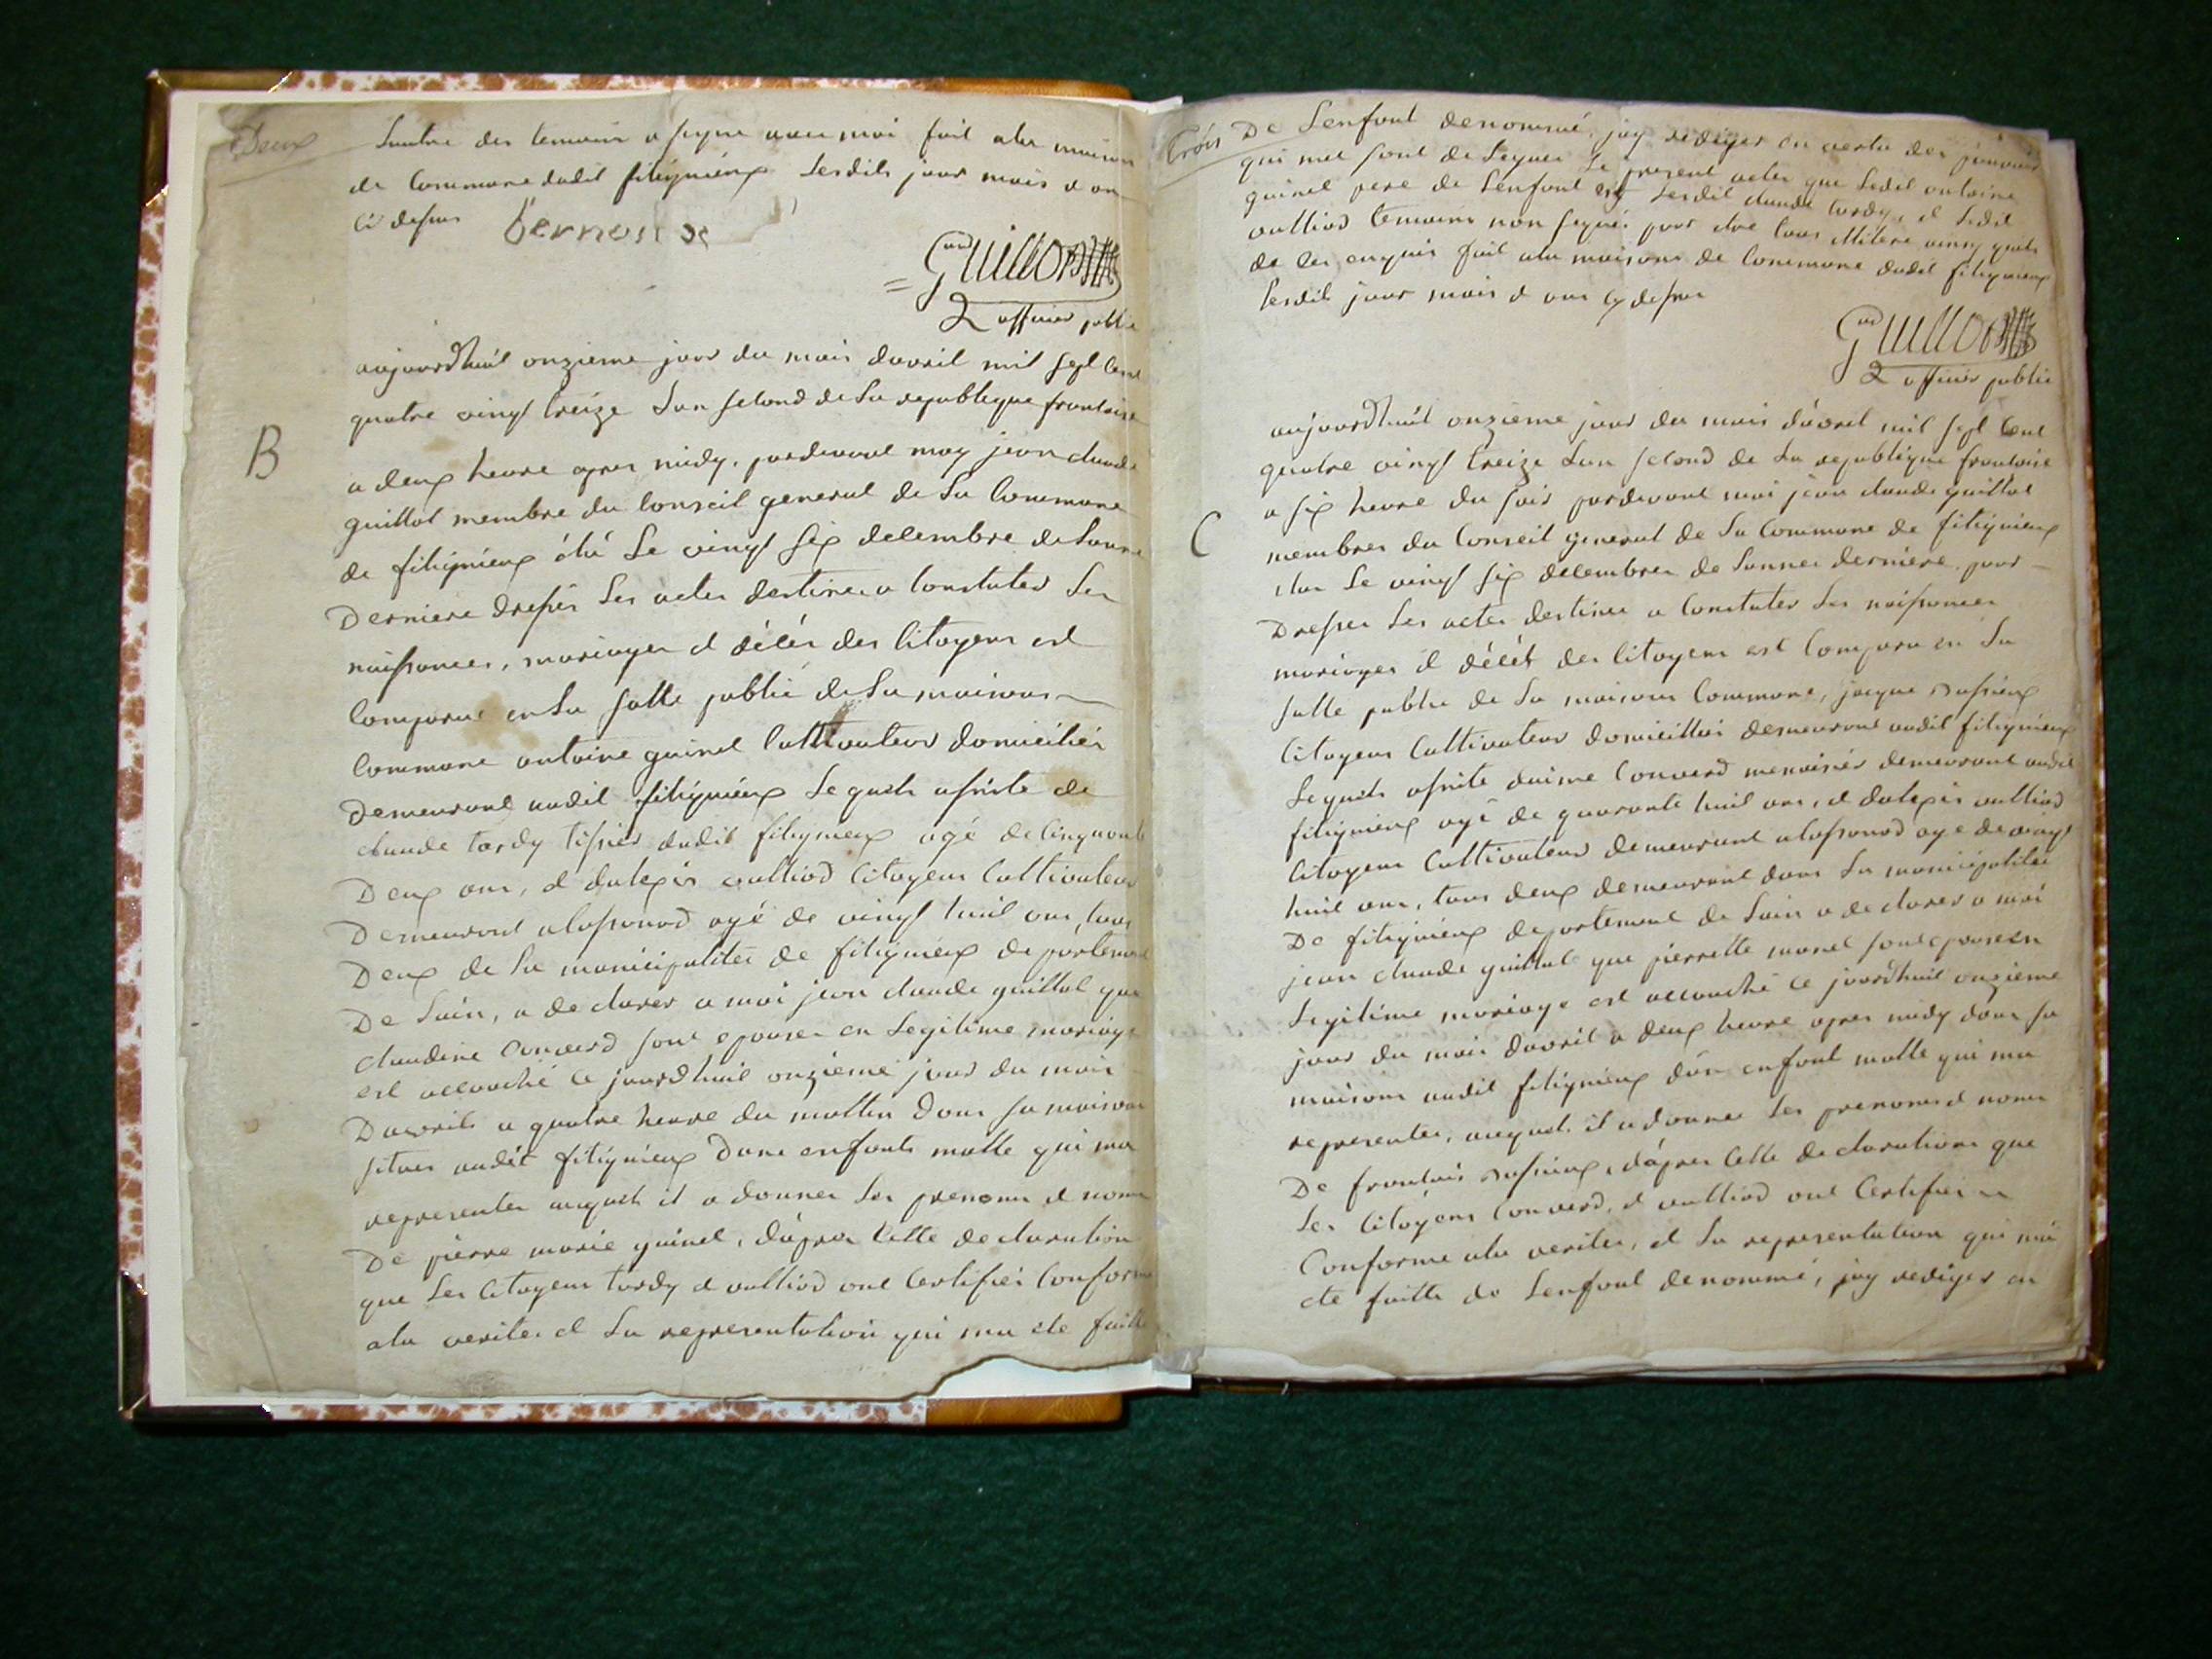 Deux
Lautre des temoins a signé avec moi fait ala maison
de Commune dudit fitignieux Lesdits jour mois et an
Ci dessus
Guillot
officier public
B
aujourdhuit onzieme jour du mois davril mil sept Cent
quatre vingt treize Lan second de La republique francoise
a deux heure apres midy, pardevant moy jean claude
guillot membre du Conseil general de La Commune
de fitignieux élu Le vingt six decembre de Lannee
Derniere dresser Les actes destinee a Constater Les
naissances, mariages et décés des Citoyens est
Comparue en La salle public de La maison
Commune antoine guinet Cultivateur domiciliér
Demeurant audit fitignieux Lequel assisté de
claude tardy tissier dudit fitignieux agé de Cinquante
Deux ans, et dalexis vulliod Citoyen Cultivateur
Demeurant alassonod agé de vingt huit ans, tous
Deux de La municipalitee de fitignieux departement
De Lain, a declarer a moi jean claude guillot que
claudine Converd sont epouser en Legitime mariage
est accouché Ce jourdhuit onzieme jour du mois
Davrils a quatre heure du mattin Dans sa maison
situee audit fitignieux Dune enfants malle qui ma
representer auquel it a donner Les prenoms et noms
De pierre marie guinet, dápres Cette declaration
que Les Citoyens tardy et vulliod ont Certifiér Conforme
ala veritee et La representation qui ma ete faitte
trois
De Lenfant denommé, jay rediger en vertu des pouvoirs
qui met sont deLeguer Le present actes que Ledit antoine
guinet pere de Lenfant et Lesdit claude tardy, et Ledit
vulliod temoins non signé pour etre tous
de ces enquis fait ala maisons de Commune dudit fitignieux
Lesdit jour mois et ans Cy dessus
Guillot
officier public
C
aujourdhuit onzieme jour du mois dávril mil sept Cent
quatre vingt treize Lan second de La republique francoise
a six heure du soir pardevant moi jean claude guillot
membres du Conseil general de La Commune de fitignieux
elue Le vingt six decembre de Lannee derniere pour
Dresser Les actes destinee a Constater Les naissances
mariages et décét des Citoyens est Comparu en La
salle public de La maisons Commune, jaque
Citoyens Cultivateur domicillié demeurant audit fitignieux
Lequels assisté daime Converd menuisier demeurant audit
fitignieux agé de quarante huit ans, et dalexis vulliod
Citoyens Cultivateur demeurant alassonod agé de vingt
huit ans, tous deux demeurant dans La municipalitee
De fitignieux departement de Lain a declarer a moi
jean claude guillot que pierrette moret sont epouse en
Legitime mariage est accouché Ce jourdhuit onzieme
jour du mois davril a deux heure apres midy dans sa
maisons audit fitignieux dún enfant malle qui ma
representer, auquel it a donner Les prenoms et noms
De francois, dápres Cette declarations que
Les Citoyens Converd, et vulliod ont Certifiér
Conforme ala veritee, et La representation qui má
ete faitte de Lenfant denommé, jay rediger en